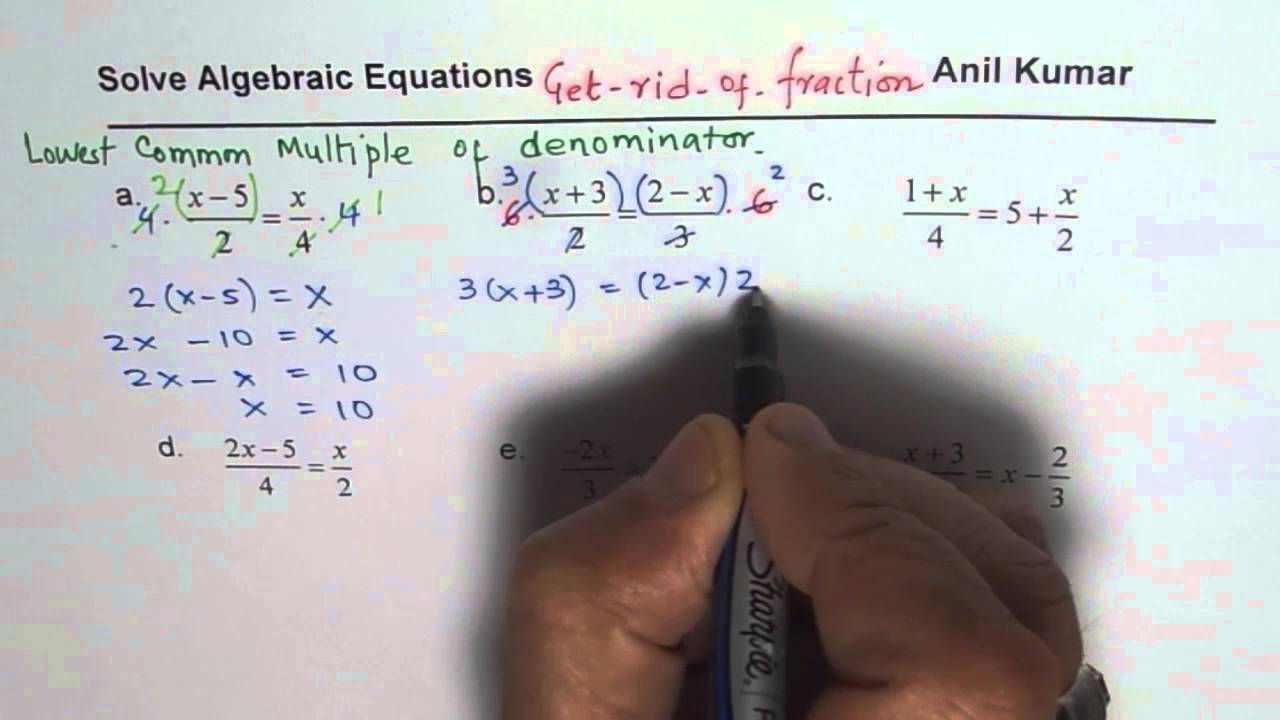 Solve Algebraic Equations Get-rid-of-fraction Anil Kumar
Lowest Common Multiple of denominator.
a. 4 · 2 (x-5)/2 = x/4 · 4 1
2(x-5) = x
2x - 10 = x
2x - x = 10
x = 10
b. 3 6 · (x+3)/2 = (2-x)/3 · 6 2
3(x+3) = (2-x)2
c. (1+x)/4 = 5 + x/2
d. (2x-5)/4 = x/2
e. -2x/3 =
x+3 = x - 2/3
Sharpie.